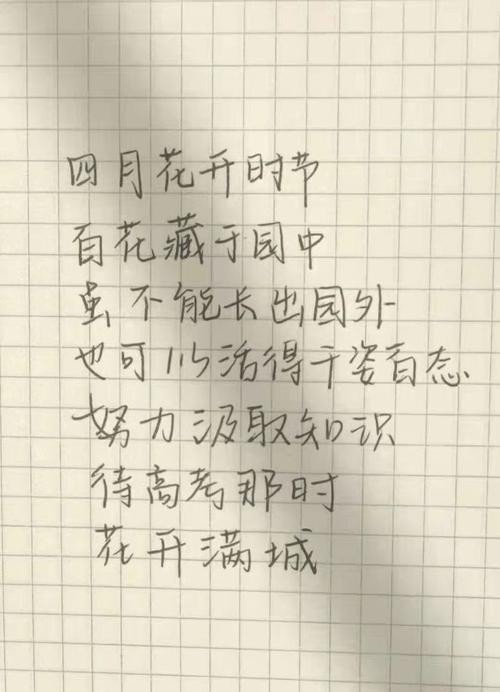 四月花开时节
百花藏于园中
虽不能长出园外
也可以活得千姿百态
努力汲取知识
待高考那时
花开满城